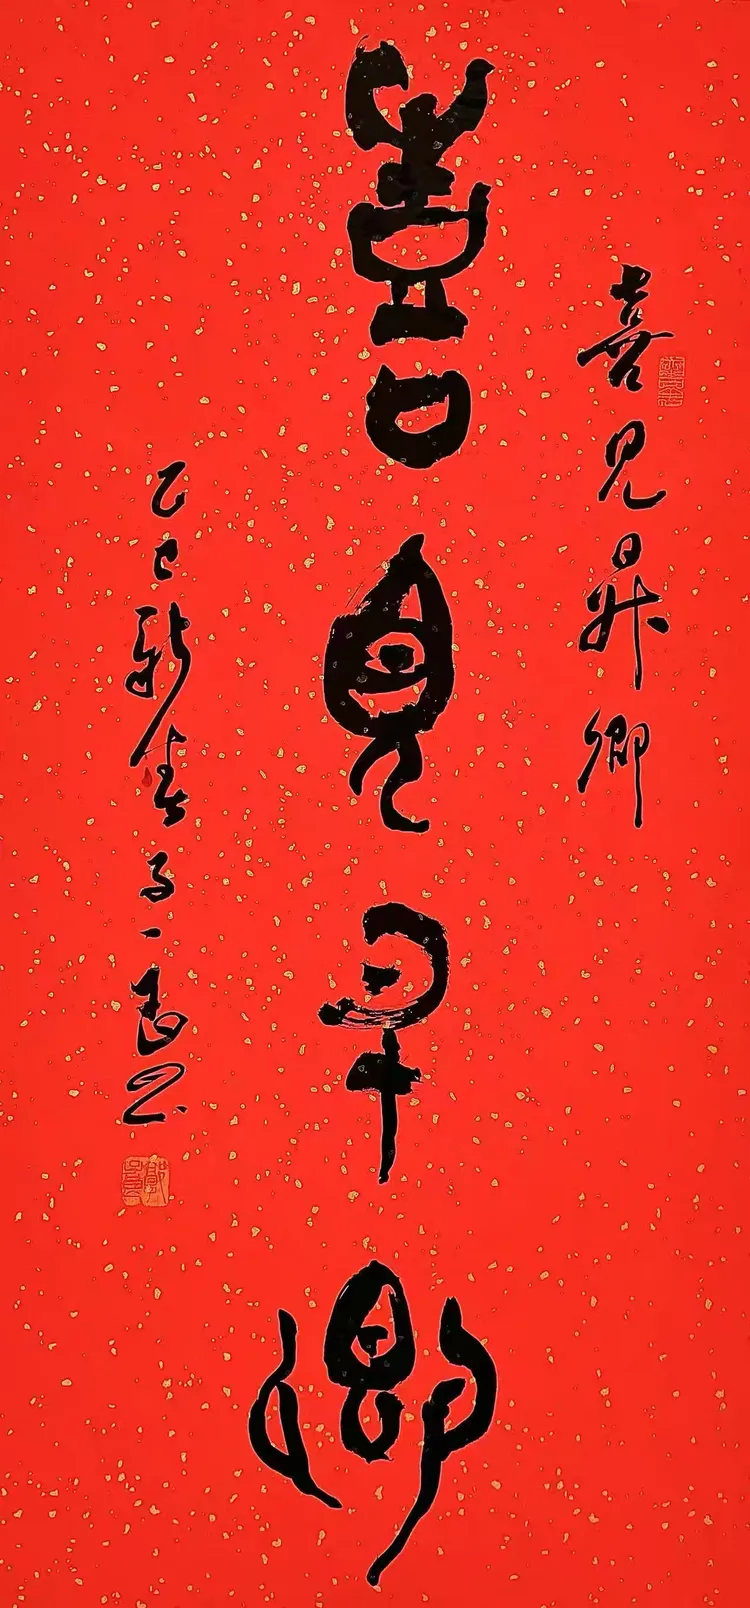 喜見昇卿
喜見昇卿
乙巳新春